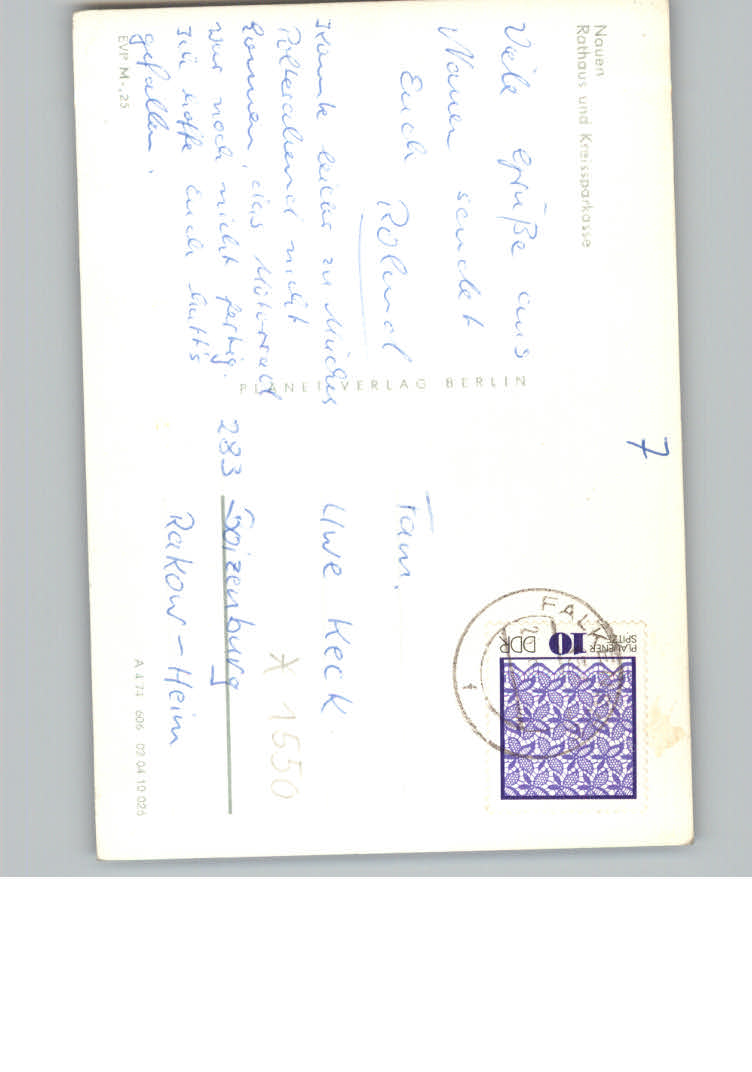 Nauen
Rathaus und Kreissparkasse
Viele Grüße aus
Nauen sendet
Euch Roland
Konnte leider zu
Polterabend nicht
kommen, das Motorrad
war noch nicht fertig.
Ich hoffe Euch hat's
gefallen.
EVP M -,25
PLANET VERLAG BERLIN
7
Fam.
Uwe Keck
283 Boizenburg
Rakow-Heim
* 1550
A 4 74 606 02 04 10 026
PLAUENER
SPITZE
10
DDR
FALKE